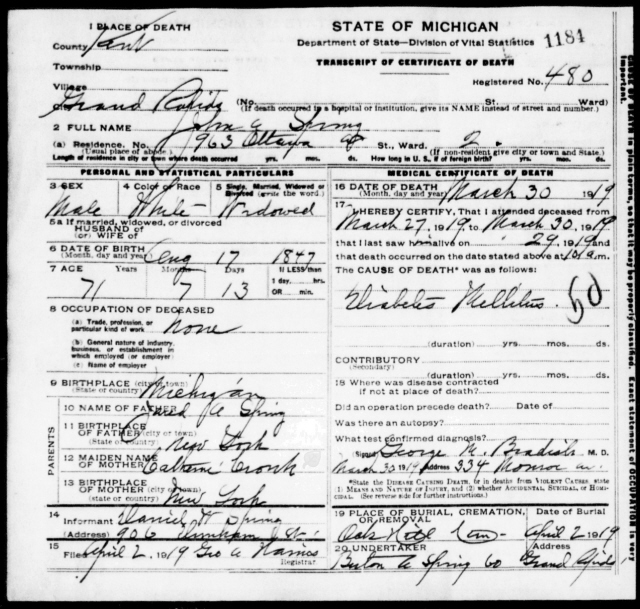 1 PLACE OF DEATH
County Kent
Township
Village
Grand Rapids
STATE OF MICHIGAN
Department of State—Division of Vital Statistics
1184
TRANSCRIPT OF CERTIFICATE OF DEATH
Registered No. 480
(No. St. Ward)
(If death occurred in a hospital or institution, give its NAME instead of street and number.)
2 FULL NAME John E Spring
(a) Residence. No. 963 Ottawa St., Ward. 2.
(Usual place of abode) (If non-resident give city or town and State.)
Length of residence in city or town where death occurred yrs. mos. ds. How long in U. S., if of foreign birth? yrs. mos. ds.
PERSONAL AND STATISTICAL PARTICULARS
3 SEX 4 Color or Race 5 Single, Married, Widowed or Divorced (write the word.)
Male White Widowed
5a If married, widowed, or divorced
HUSBAND of
(or) WIFE of
6 DATE OF BIRTH (Month, day and year) Aug 17 1847
7 AGE Years Months Days If LESS than
1 day, hrs.
OR min.
71 7 13
8 OCCUPATION OF DECEASED
(a) Trade, profession, or particular kind of work none
(b) General nature of industry, business, or establishment in which employed (or employer)
(c) Name of employer
9 BIRTHPLACE (city or town)
(State or country) Michigan
PARENTS
10 NAME OF FATHER A Spring
11 BIRTHPLACE OF FATHER (city or town)
(State or country) New York
12 MAIDEN NAME OF MOTHER Cronk
13 BIRTHPLACE OF MOTHER (city or town)
(State or country) New York
14 Informant Daniel W Spring
(Address) 906
15 Filed April 2, 1919 Geo A
Registrar
MEDICAL CERTIFICATE OF DEATH
16 DATE OF DEATH (Month, day and year) March 30 1919
17 I HEREBY CERTIFY, That I attended deceased from
March 27, 1919, to March 30, 1919
that I last saw him alive on " 29, 1919, and
that death occurred on the date stated above at 10 a m.
The CAUSE OF DEATH* was as follows:
Diabetes Mellitus 50
(duration) yrs. mos. ds.
CONTRIBUTORY
(Secondary)
(duration) yrs. mos. ds.
18 Where was disease contracted
if not at place of death?
Did an operation precede death? Date of
Was there an autopsy?
What test confirmed diagnosis?
(Signed) George M. Bradish M. D.
March 30 1919 Address 334 Monroe av.
*State the Disease Causing Death, or in deaths from Violent Causes, state (1) Means and Nature of Injury, and (2) whether Accidental, Suicidal, or Homicidal. (See reverse side for further instructions.)
19 PLACE OF BURIAL, CREMATION, OR REMOVAL Date of Burial
Oak Hill Cem April 2 1919
20 UNDERTAKER Address
A Spring Co Grand Rapids